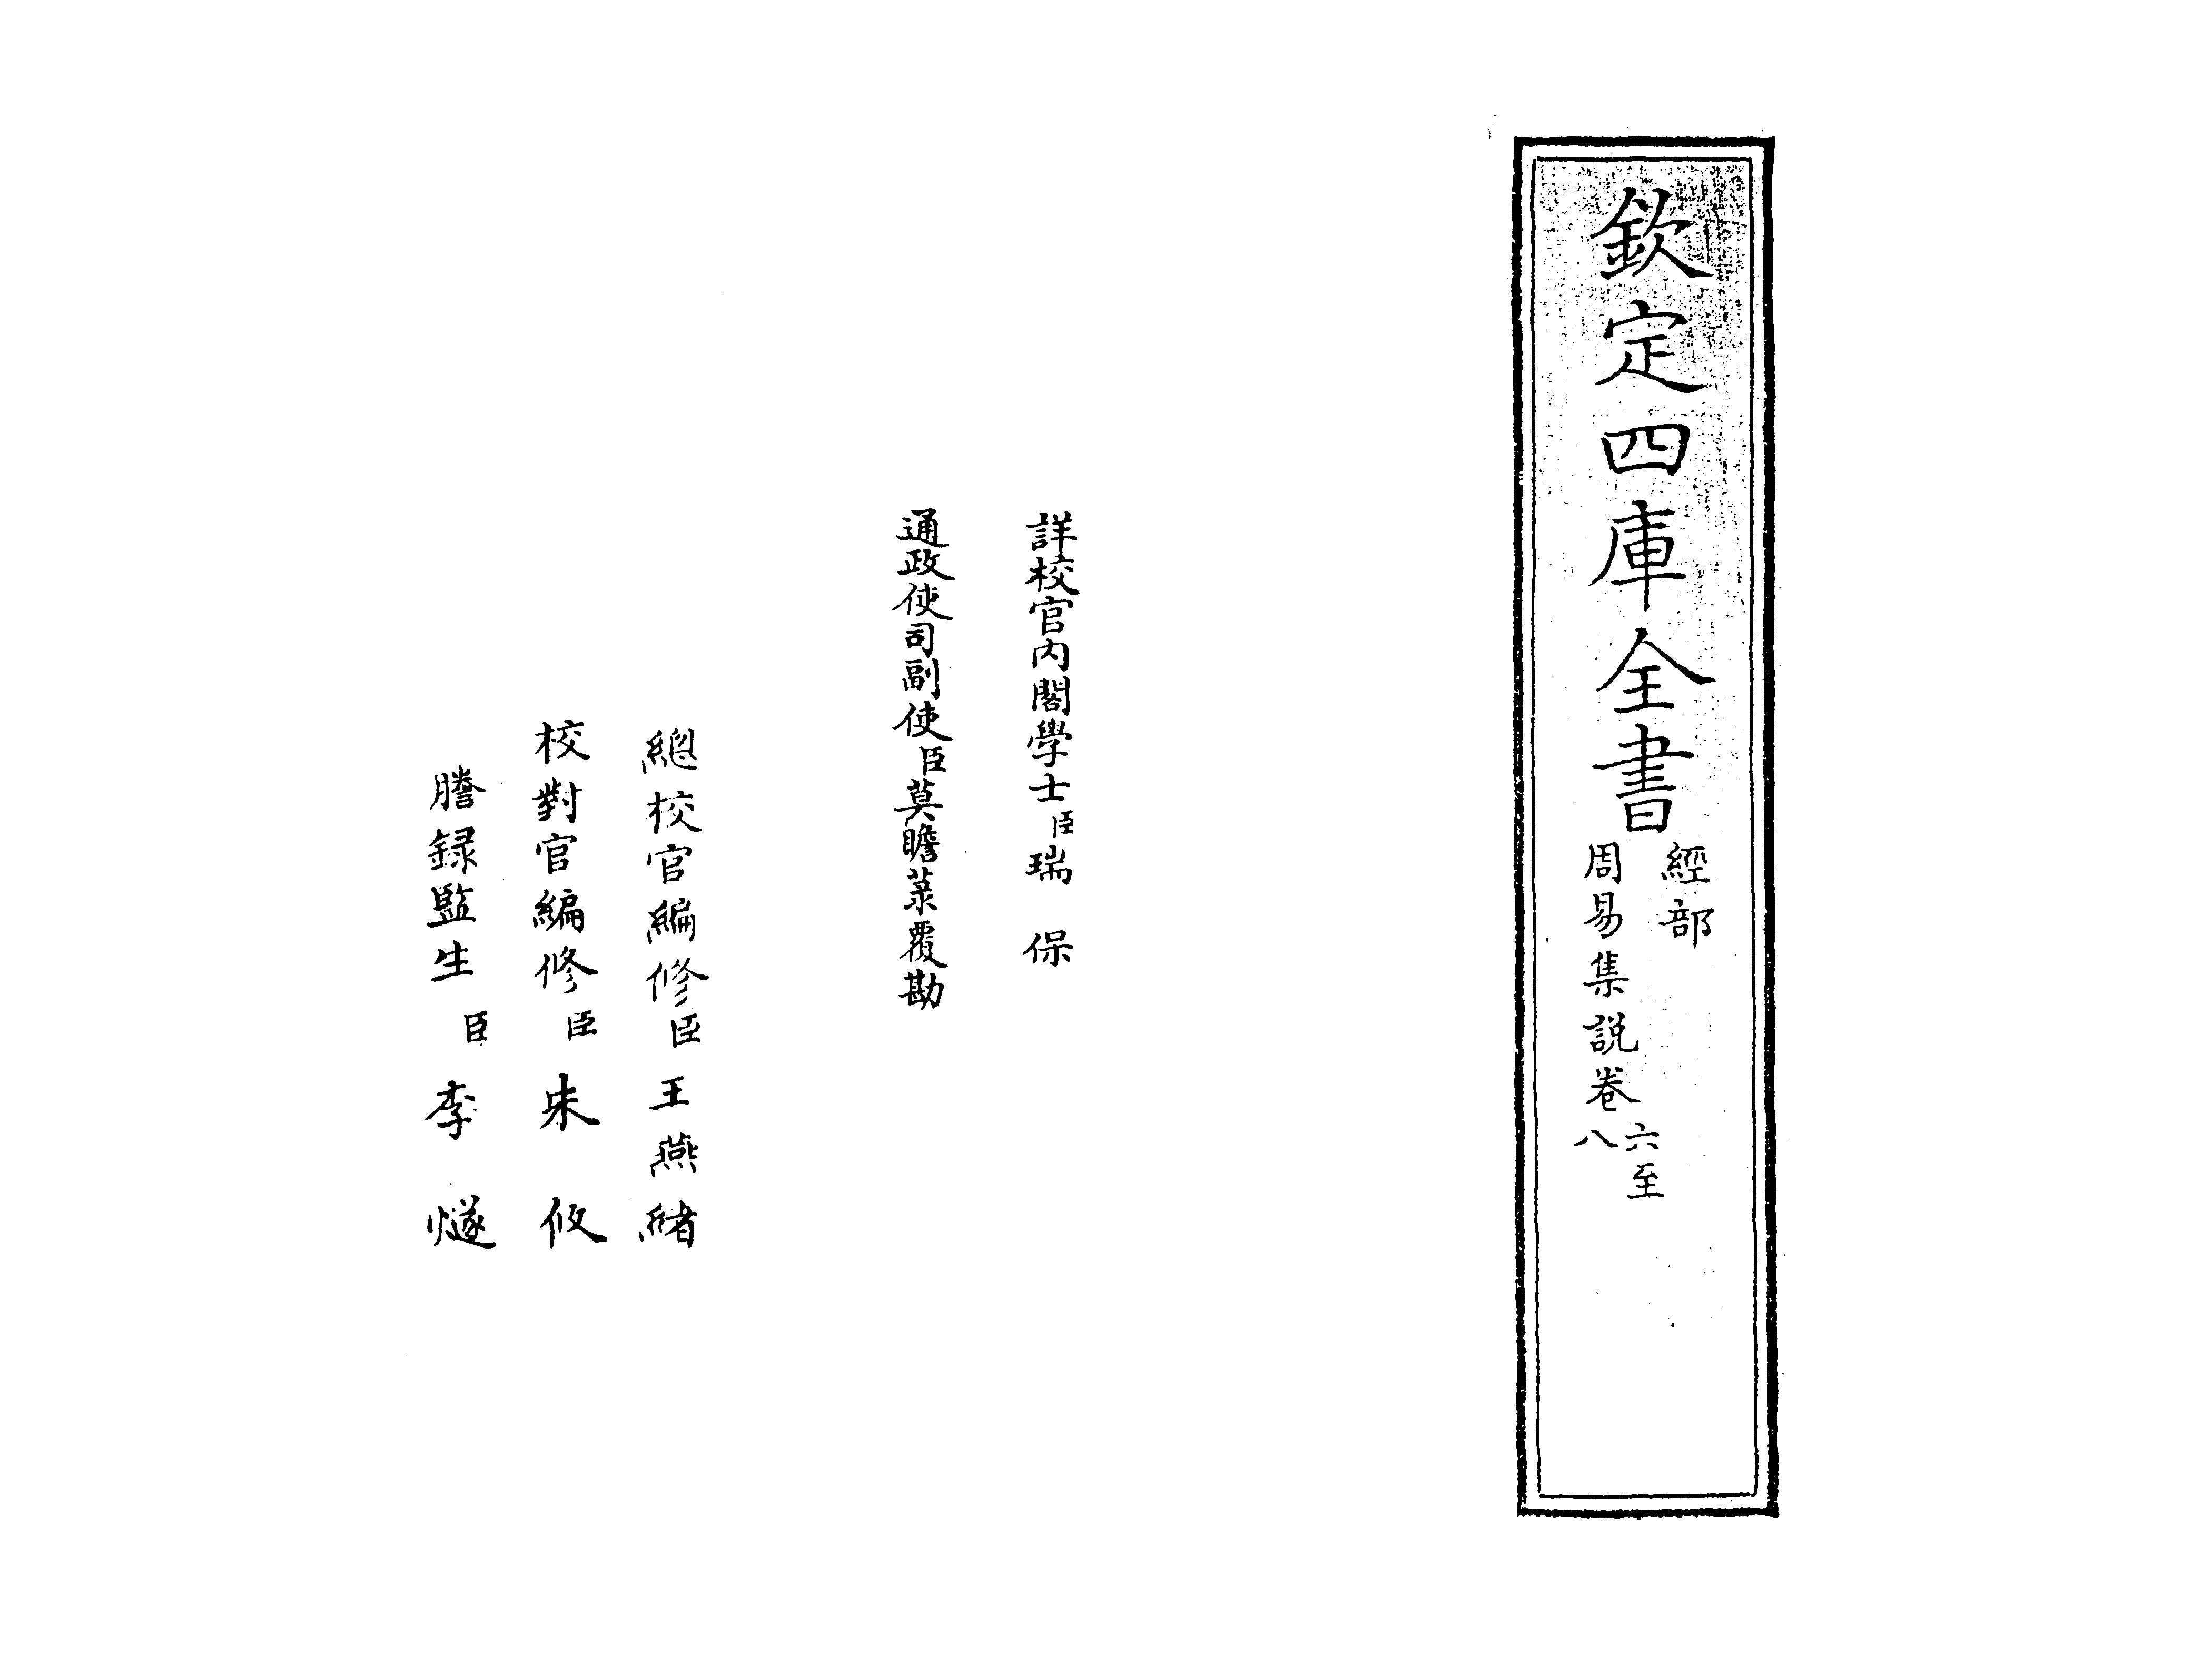 欽定四庫全書
經部
周易集說卷六至八
詳校官內閣學士臣瑞保
通政使司副使臣莫瞻菉覆勘
總校官編修臣王燕緒
校對官編修臣朱攸
謄録監生臣李燧